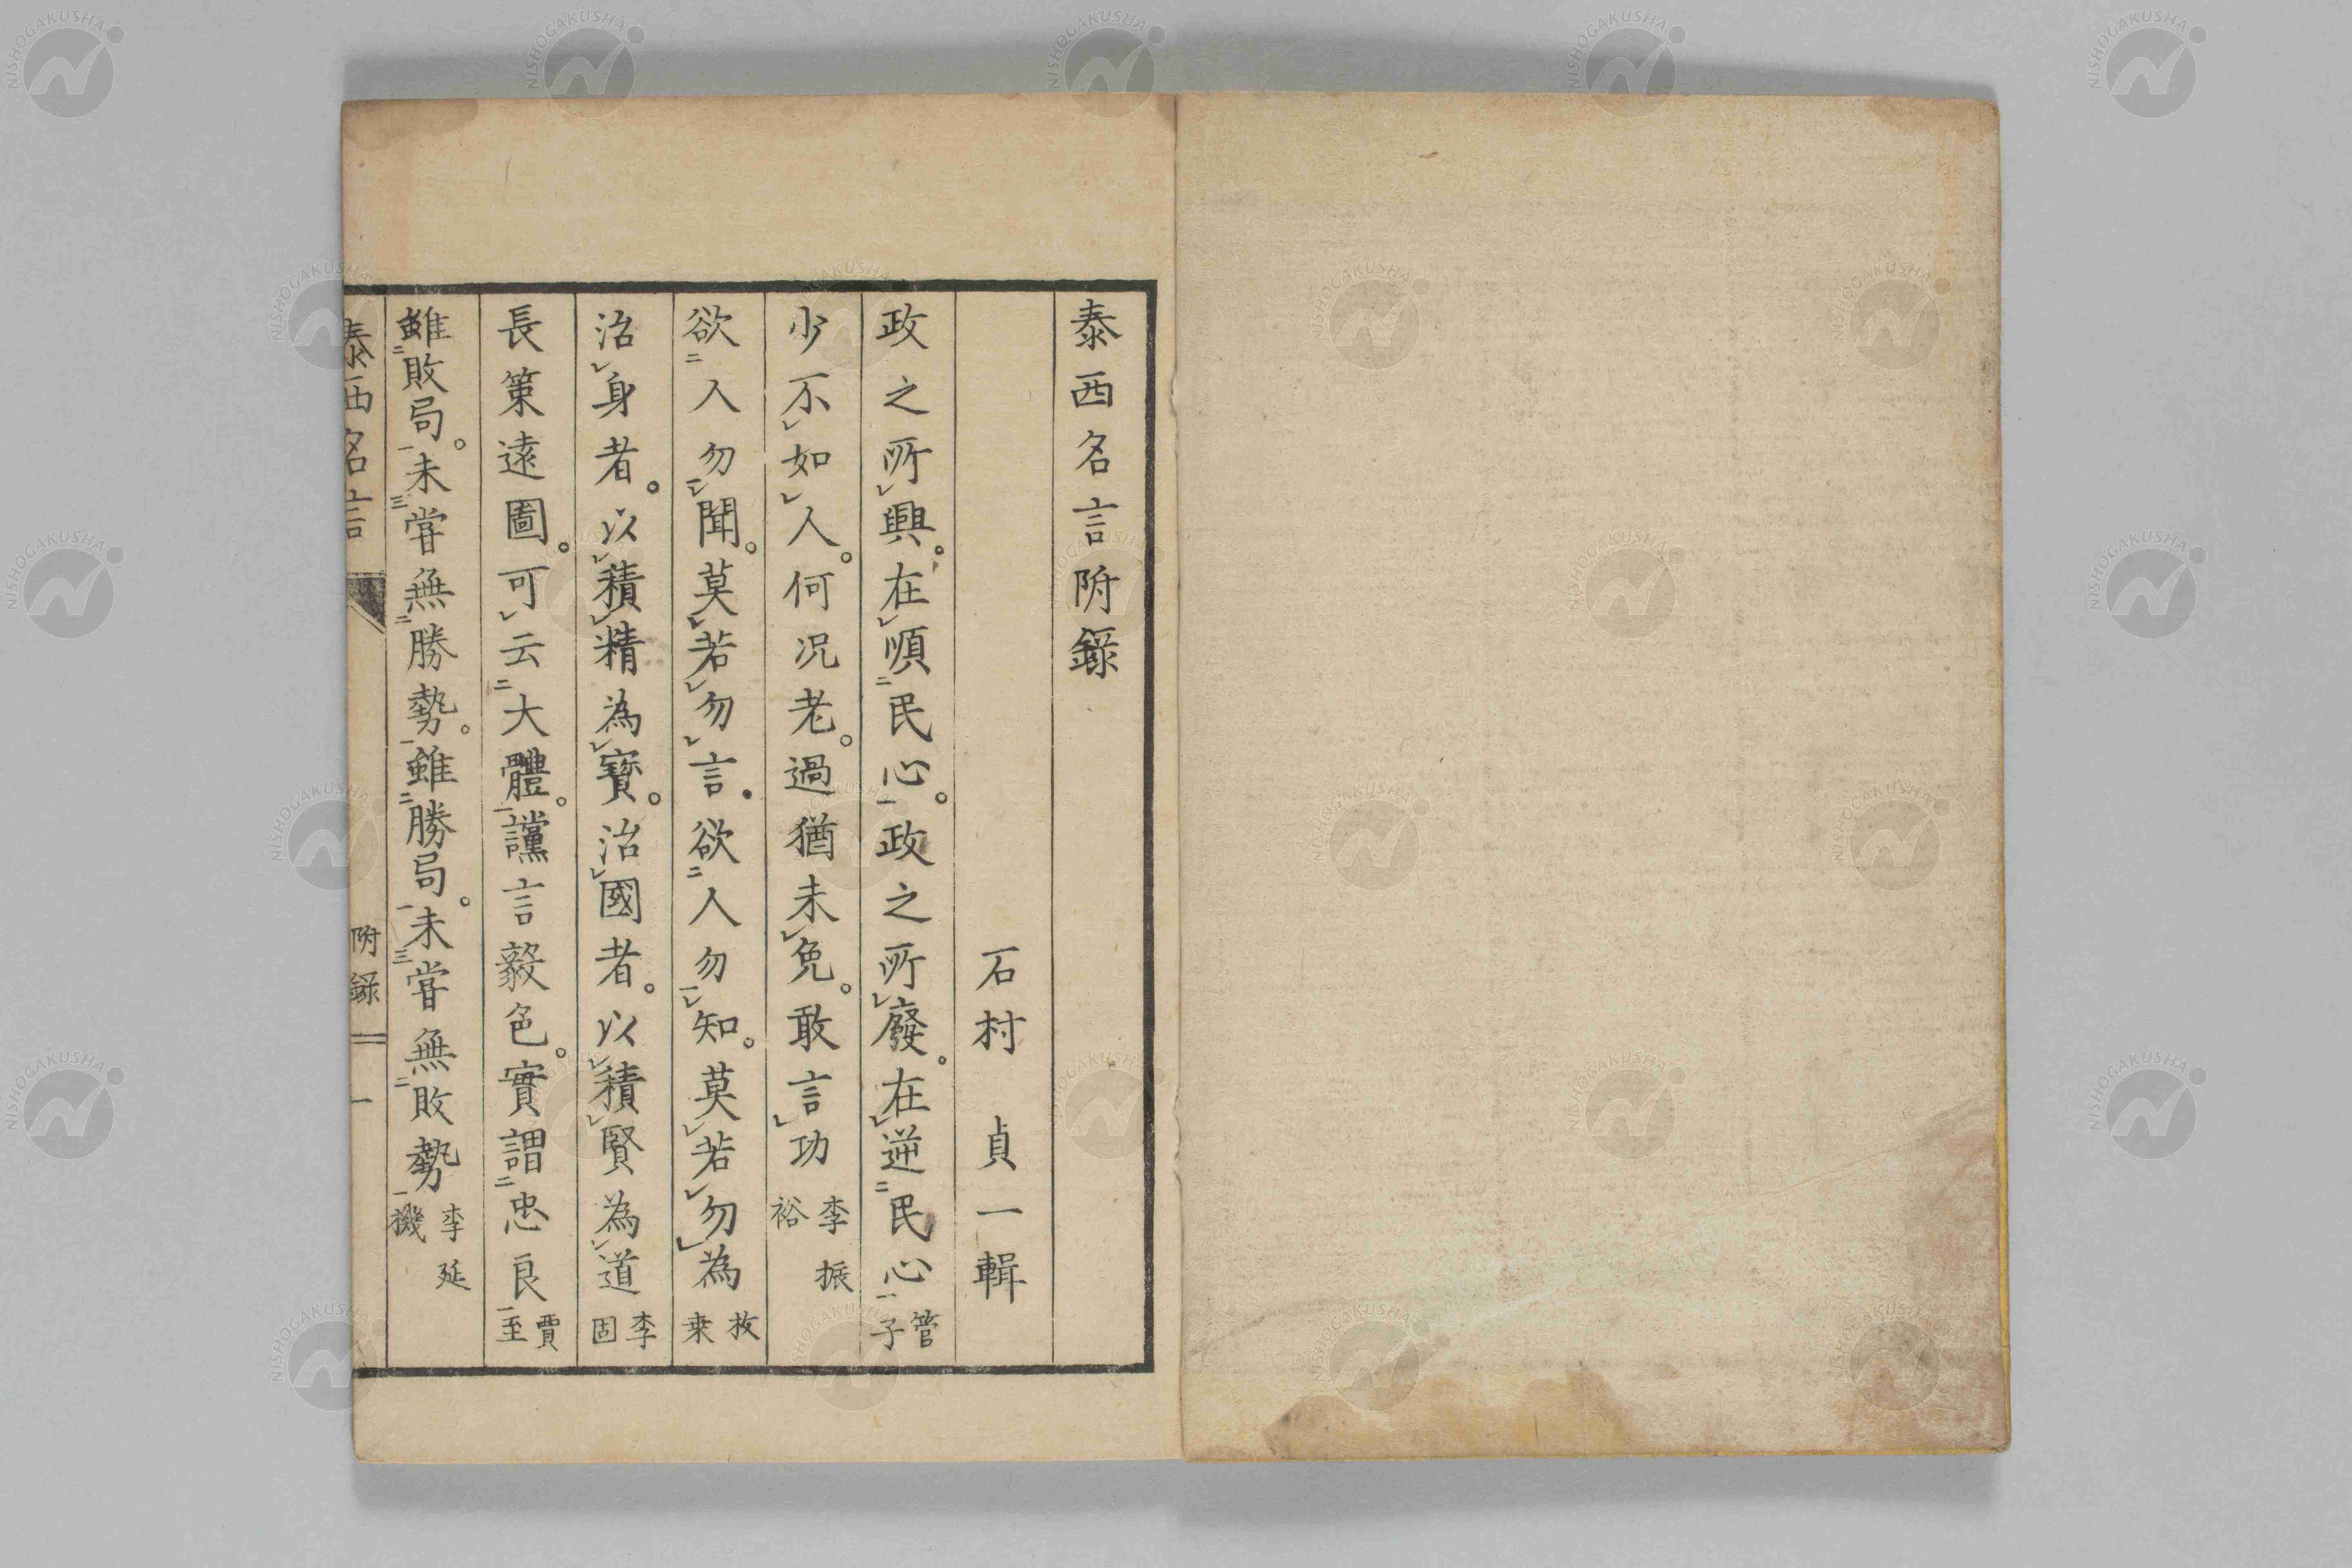 泰西名言附錄
石村 貞一輯
政之所興。在順民心。政之所廢。在逆民心管子
少不如人。何況老。過猶未免。敢言功李振裕
欲人勿聞。莫若勿言。欲人勿知。莫若勿為枚乗
治身者。以積精為寶。治國者。以積賢為道李固
長策遠圖。可云大體。讜言毅色。實謂忠良賈至
雖敗局。未嘗無勝勢。雖勝局。未嘗無敗勢李延禨
泰西名言 附錄 一
NISHOGAKUSHA